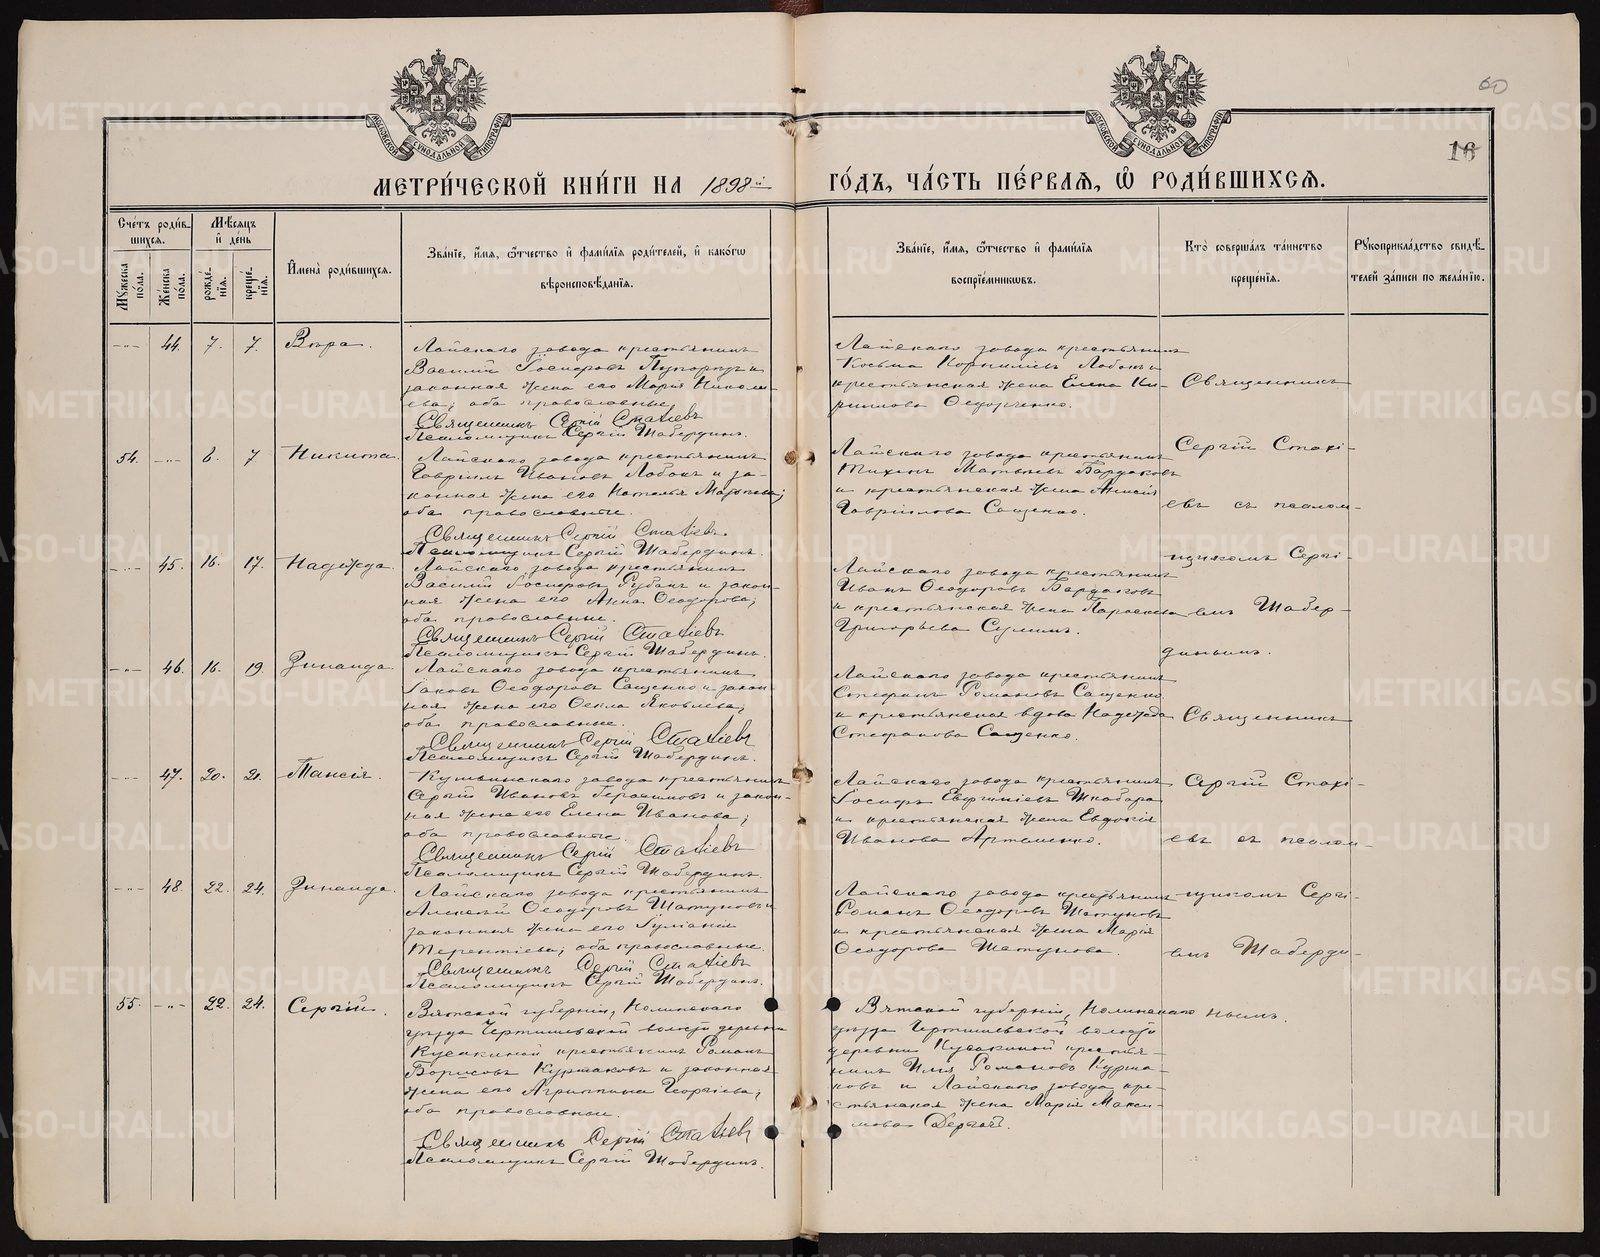 60
16
МЕТРИ́ЧЕСКОЙ КНИ́ГИ НА 1898й
ГО́ДЪ, ЧА́СТЬ ПЕ́РВАЯ, Ѽ РОДИ́ВШИХСЯ.
Сче́тъ роди́в-
шихся.
Мꙋжеска по́ла.
Же́нска по́ла.
Мѣ́сяцъ и҆ де́нь
рожде́-нїѧ.
креще́-нїѧ.
И҆мена̀ роди́вшихся.
Зва́нїе, и҆́мя, ѻ҆́тчество и҆ фами́лїя роди́телей, и҆ како́гѡ
вѣроисповѣ́данїя.
Зва́нїе, и҆́мя, ѻ҆́тчество и҆ фами́лїя
воспрїе́мникѡвъ.
Кто̀ соверша́лъ та́инство
креще́нїя.
Рꙋкоприкла́дство свидѣ́-
телей за́писи по жела́нїю.
44. 7. 7. Вѣра.
Лайскаго завода крестьянинъ
Василій Іосифовъ и
законная жена его Марія Никола-
ева; оба православные,
Священникъ Сергій Стахіевъ
Псаломщикъ Сергій Шабердинъ.
Лайскаго завода крестьянинъ
Косьма Корниліевъ и
крестьянская жена Елена Ки-
риллова Ѳедорченко.
54. 6. 7 Никита.
Лайскаго завода крестьянинъ
Гавріилъ Ивановъ Лобокъ и за-
конная жена его Наталья
оба православные.
Священникъ Сергій Стахіевъ.
Псаломщикъ Сергій Шабердинъ.
Лайскаго завода крестьянинъ
Тихонъ Матѳіевъ Бардаковъ
и крестьянская жена Анисія
Гавріилова Сащенко.
45. 16. 17. Надежда.
Лайскаго завода крестьянинъ
Василій Іосифовъ Рубанъ и закон-
ная жена его Анна Ѳеодорова;
оба православные.
Священникъ Сергій Стахіевъ
Псаломщикъ Сергій Шабердинъ.
Лайскаго завода крестьянинъ
Иванъ Ѳеодоровъ Бардаковъ
и крестьянская жена Параскева
Григорьева Сулимъ.
46. 16. 19. Зинаида.
Лайскаго завода крестьянинъ
Іаковъ Ѳеодоровъ Сащенко и закон-
ная жена его Ѳекла Яковлева;
оба православные.
Священникъ Сергій Стахіевъ
Псаломщикъ Сергій Шабердинъ.
Лайскаго завода крестьянинъ
Стефанъ Романовъ Сащенко
и крестьянская вдова Надежда
Стефанова Сащенко.
47. 20. 21. Таисія.
Кушвинскаго завода крестьянинъ
Сергій Ивановъ Герасимовъ и закон-
ная жена его Елена Иванова;
оба православные.
Священникъ Сергій Стахіевъ
Псаломщикъ Сергій Шабердинъ.
Лайскаго завода крестьянинъ
Іосифъ Евфиміевъ Шкабара
и крестьянская жена Евдокія
Иванова Артюшенко.
48. 22. 24. Зинаида.
Лайскаго завода крестьянинъ
Алексій Ѳеодоровъ Шатуновъ и
законная жена его Іуліанія
Терентіева; оба православные.
Священникъ Сергій Стахіевъ
Псаломщикъ Сергій Шабердинъ.
Лайскаго завода крестьянинъ
Романъ Ѳеодоровъ Шатуновъ
и крестьянская жена Марія
Ѳеодорова Шатунова.
55. 22. 24. Сергій.
Вятской губерніи, Нолинскаго
уѣзда волости деревни
Кусакиной крестьянинъ Романъ
Борисовъ Куршаковъ и законная
жена его Агриппина Георгіева;
оба православные.
Священникъ Сергій Стахіевъ
Псаломщикъ Сергій Шабердинъ.
Вятской губерніи, Нолинскаго
уѣзда волости
деревни Кусакиной крестья-
нинъ Илья Романовъ Курша-
ковъ и Лайскаго завода кре-
стьянская жена Марія Макси-
мова Дергай.
Священникъ
Сергій Стахі-
евъ съ псалом-
щикомъ Сергі-
емъ Шабер-
динымъ.
Священникъ
Сергій Стахі-
евъ съ псалом-
щикомъ Сергі-
емъ Шаберди-
нымъ.
METRIKI.GASO-URAL.RU